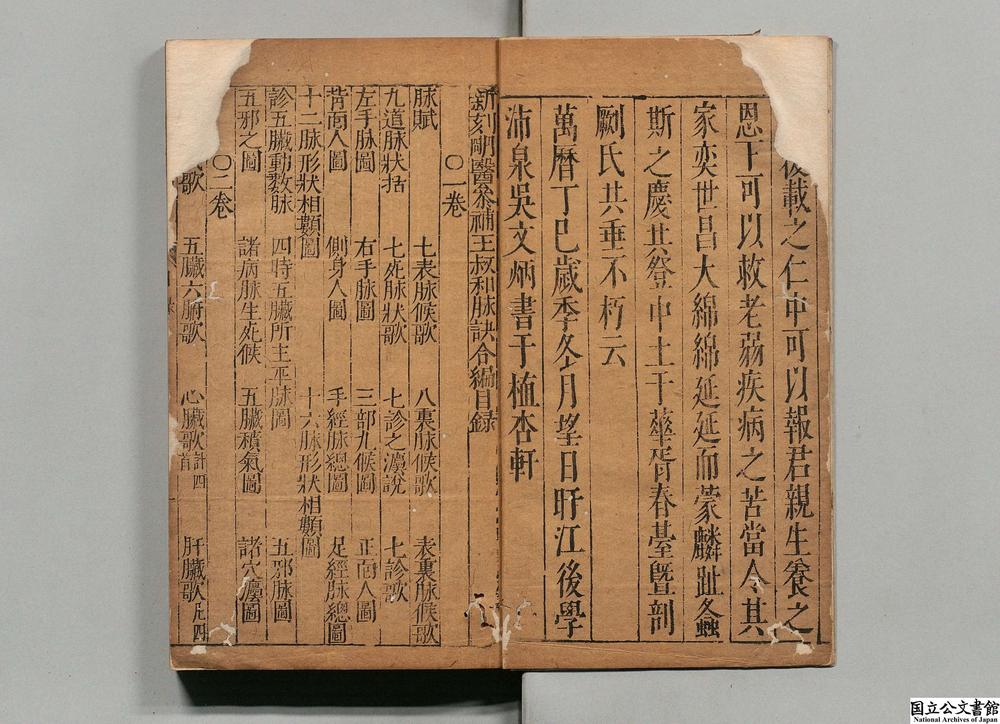 後載之仁中可以報君親生養之
恩下可以救老弱疾病之苦當令其
家奕世昌大綿綿延延而蒙麟趾螽
斯之慶共登中土于華胥春臺曁剖
劂氏共垂不朽云
萬曆丁巳歲季冬月望日旴江後學
沛泉吳文炳書于植杏軒
新刻明醫參補王叔和脉訣合編目錄
〇一卷
脉賦 七表脉候歌 八裏脉候歌 表裏脉候歌
九道脉狀括 七死脉狀歌 七診之灋說 七診歌
左手脉圖 右手脉圖 三部九候圖 正面人圖
背面人圖 側身人圖 手經脉總圖 足經脉總圖
十二脉形狀相類圖 十六脉形狀相類圖
診五臟動數脉 四時五臟所主平脉圖 五邪脉圖
五邪之圖 諸病脉生死候 五臟積氣圖 諸穴灋圖
〇二卷
歌 五臟六腑歌 心臟歌計四首 肝臟歌
国立公文書館
National Archives of Japan